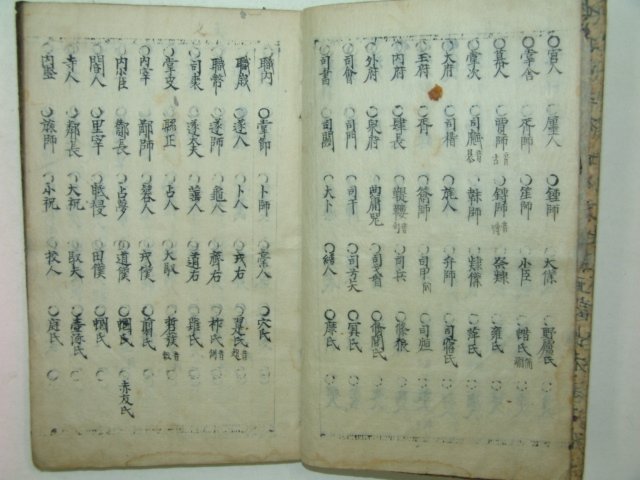 宮人 廛人 鍾師 大僕 野廬氏
掌舍 胥師 笙師 小臣 蜡氏
幕人 賈師 鎛師 祭僕 雍氏
掌次 司虣 韎師 隸僕 萍氏
大府 司稽 旄人 弁師 司寤氏
玉府 胥 籥師 司甲 司烜
内府 肆長 鞮鞻 司兵 條狼
外府 泉府 典庸器 司戈盾 修閭氏
司會 司門 司干 司弓矢 冥氏
司書 司關 大卜 繕人 庶氏
職内 掌節 卜師 槀人 穴氏
職歲 遂人 卜人 戎右 翨氏
職幣 遂師 龜人 齊右 柞氏
司裘 遂大夫 菙人 道右 薙氏
掌皮 縣正 占人 大馭 硩蔟
内宰 鄙師 簭人 戎僕 翦氏
内小臣 酇長 占夢 道僕 蟈氏 赤犮氏
閽人 里宰 眡祲 田僕 蟈氏
寺人 鄰長 大祝 馭夫 壺涿氏
内竪 旅師 小祝 校人 庭氏